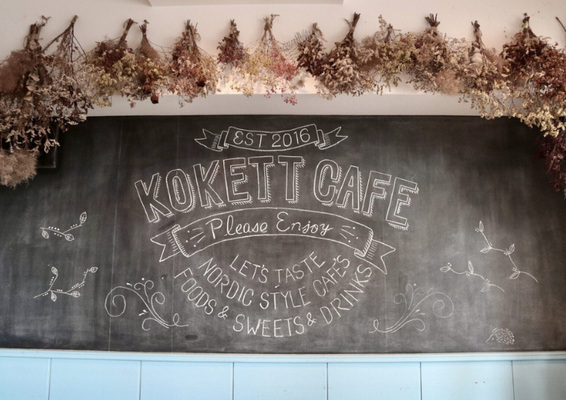 EST 2016
KOKETT CAFE
Please Enjoy
LET'S TASTE
NORDIC STYLE CAFE'S
FOODS & SWEETS & DRINKS